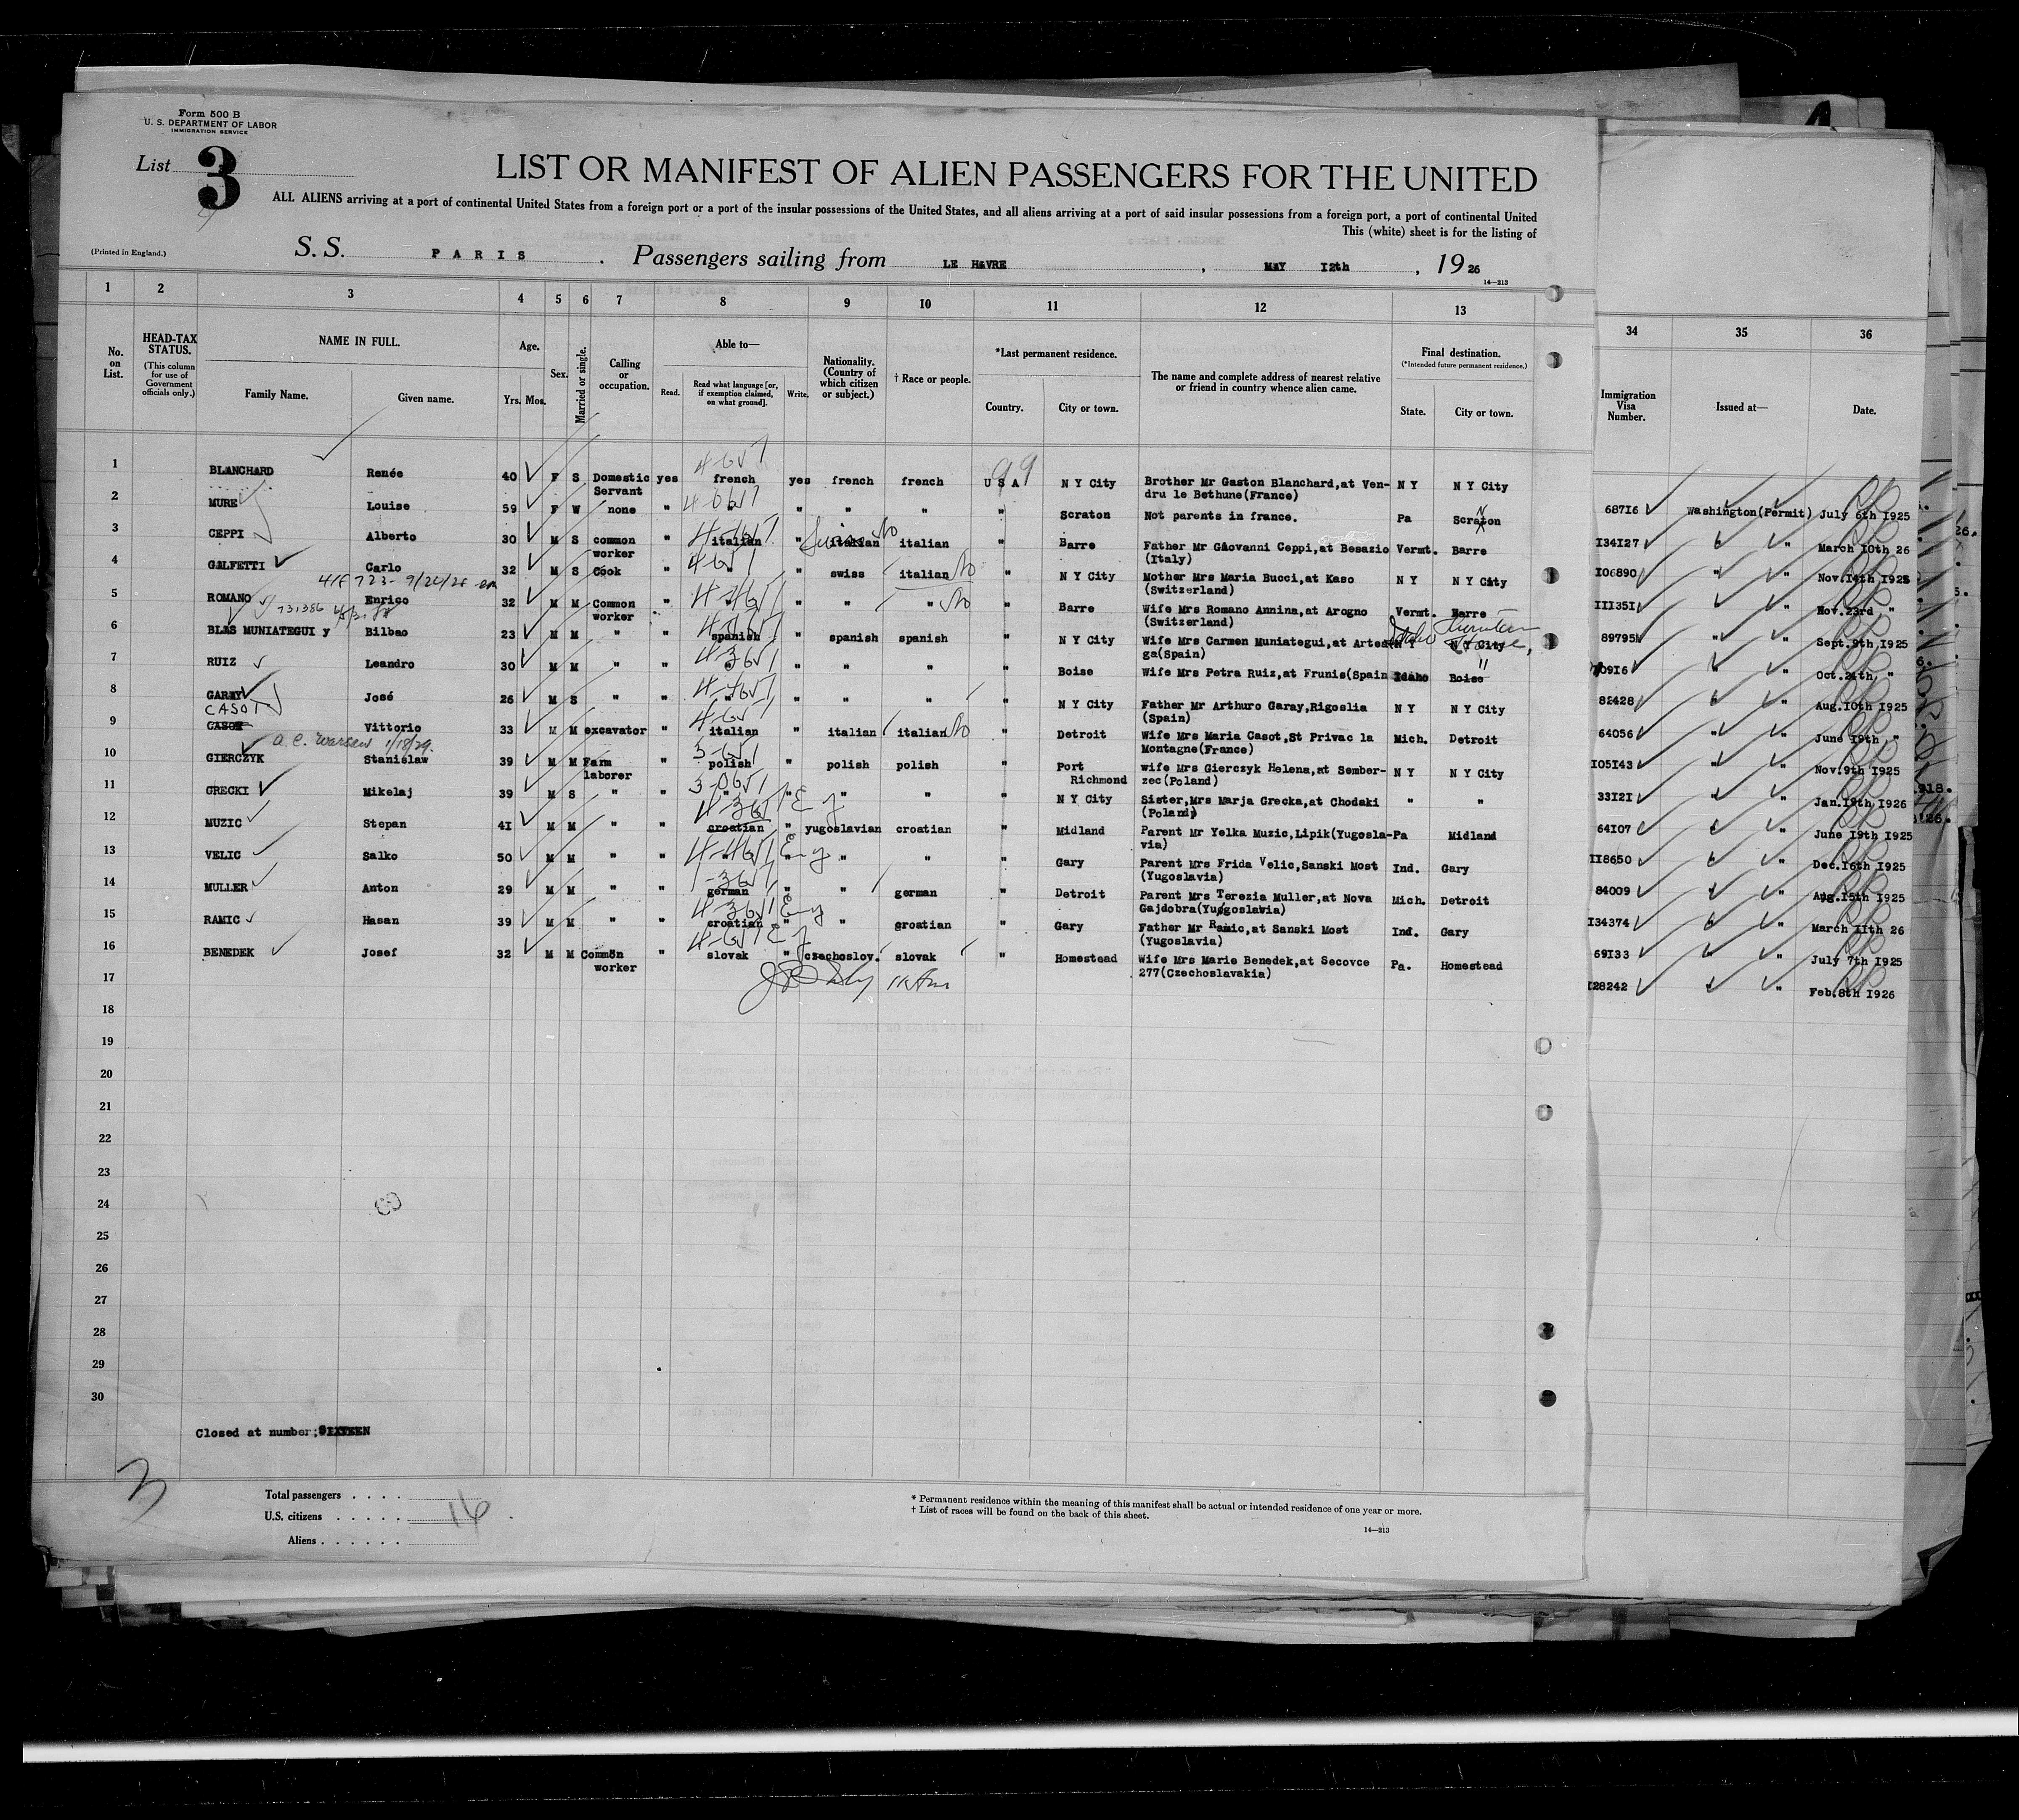 Form 500 B
U. S. DEPARTMENT OF LABOR
IMMIGRATION SERVICE
List 3
LIST OR MANIFEST OF ALIEN PASSENGERS FOR THE UNITED
ALL ALIENS arriving at a port of continental United States from a foreign port or a port of the insular possessions of the United States, and all aliens arriving at a port of said insular possessions from a foreign port, a port of continental United
This (white) sheet is for the listing of
(Printed in England.)
S.S. PARIS . Passengers sailing from LE HAVRE , MAY I2th , 1926
14—213
1 2 3 4 5 6 7 8 9 10 11 12 13 34 35 36
No. on List.
HEAD-TAX STATUS.
(This column for use of Government officials only.)
NAME IN FULL.
Family Name. Given name.
Age.
Yrs. Mos.
Sex.
Married or single.
Calling or occupation.
Able to—
Read.
Read what language [or, if exemption claimed, on what ground].
Write.
Nationality. (Country of which citizen or subject.)
† Race or people.
*Last permanent residence.
Country. City or town.
The name and complete address of nearest relative or friend in country whence alien came.
Final destination.
(*Intended future permanent residence.)
State. City or town.
Immigration Visa Number.
Issued at—
Date.
1 BLANCHARD Renée 40 F S Domestic Servant yes french yes french french U S A N Y City Brother Mr Gaston Blanchard,at Ven-dru le Bethune(France) N Y N Y City 687I6 Washington(Permit) July 6th I925
2 MURE Louise 59 F W none " " " " " " Scraton Not parents in france. Pa Scraton I34I27 " " March I0th 26
3 CEPPI Alberto 30 M S common worker " italian " italian Swiss No italian " Barre Father Mr Giovanni Ceppi,at Besazio (Italy) Vermt. Barre I06890 " " Nov.I4th I925
4 GALFETTI Carlo 32 M S Cook " " " swiss italian No " N Y City Mother Mrs Maria Bucci,at Kaso (Switzerland) N Y N Y City III35I " " Nov.23rd "
5 ROMANO Enrico 32 M M Common worker " " " " " No " Barre Wife Mrs Romano Annina,at Arogno (Switzerland) Vermt. Barre 89795 " " Sept.9th I925
6 BLAS MUNIATEGUI y Bilbao 23 M M " " spanish " spanish spanish " N Y City Wife Mrs Carmen Muniategui,at Artea-ga(Spain) N Y N Y City Idaho 09I6 " " Oct.24th "
7 RUIZ Leandro 30 M M " " " " " " " Boise Wife Mrs Petra Ruiz,at Frunis(Spain Idaho Boise " 82428 " " Aug.I0th I925
8 GARAY José 26 M S " " " " " " " N Y City Father Mr Arthuro Garay,Rigoslia (Spain) N Y N Y City 64056 " " June I9th "
CASOT
9 CASOT Vittorio 33 M M excavator " italian " italian italian No " Detroit Wife Mrs Maria Casot,St Privac la Montagne(France) Mich. Detroit I05I43 " " Nov.9th I925
a.c. Warsaw 1/18/29.
10 GIERCZYK Stanislaw 39 M M Farm laborer " polish " polish polish " Port Richmond wife Mrs Gierczyk Helena,at Sember-zec(Poland) N Y N Y City 33I2I " " Jan.I9th I926
11 GRECKI Mikelaj 39 M S " " " " " " " N Y City Sister,Mrs Marja Grecka,at Chodaki (Poland) " " 64I07 " " June I9th I925
12 MUZIC Stepan 4I M M " " croatian " yugoslavian croatian " Midland Parent Mr Yelka Muzic,Lipik(Yugosla-via) Pa Midland II8650 " " Dec.I6th I925
13 VELIC Salko 50 M M " " " " " " " Gary Parent Mrs Frida Velic,Sanski Most (Yugoslavia) Ind. Gary 84009 " " Aug.I5th I925
14 MULLER Anton 29 M M " " german " " german " Detroit Parent Mrs Terezia Muller,at Nova Gajdobra(Yugoslavia) Mich. Detroit I34374 " " March IIth 26
15 RAMIC Hasan 39 M M " " croatian " " croatian " Gary Father Mr Ramic,at Sanski Most (Yugoslavia) Ind. Gary 69I33 " " July 7th I925
16 BENEDEK Josef 32 M M Common worker " slovak " czechoslov. slovak " Homestead Wife Mrs Marie Benedek,at Secovce 277(Czechoslavakia) Pa. Homestead I28242 " " Feb.8th I926
17
18
19
20
21
22
23
24
25
26
27
28
29
30
Closed at number;SIXTEEN
3
Total passengers . . . .
U.S. citizens . . . . . 16
Aliens . . . . . .
* Permanent residence within the meaning of this manifest shall be actual or intended residence of one year or more.
† List of races will be found on the back of this sheet.
14—213